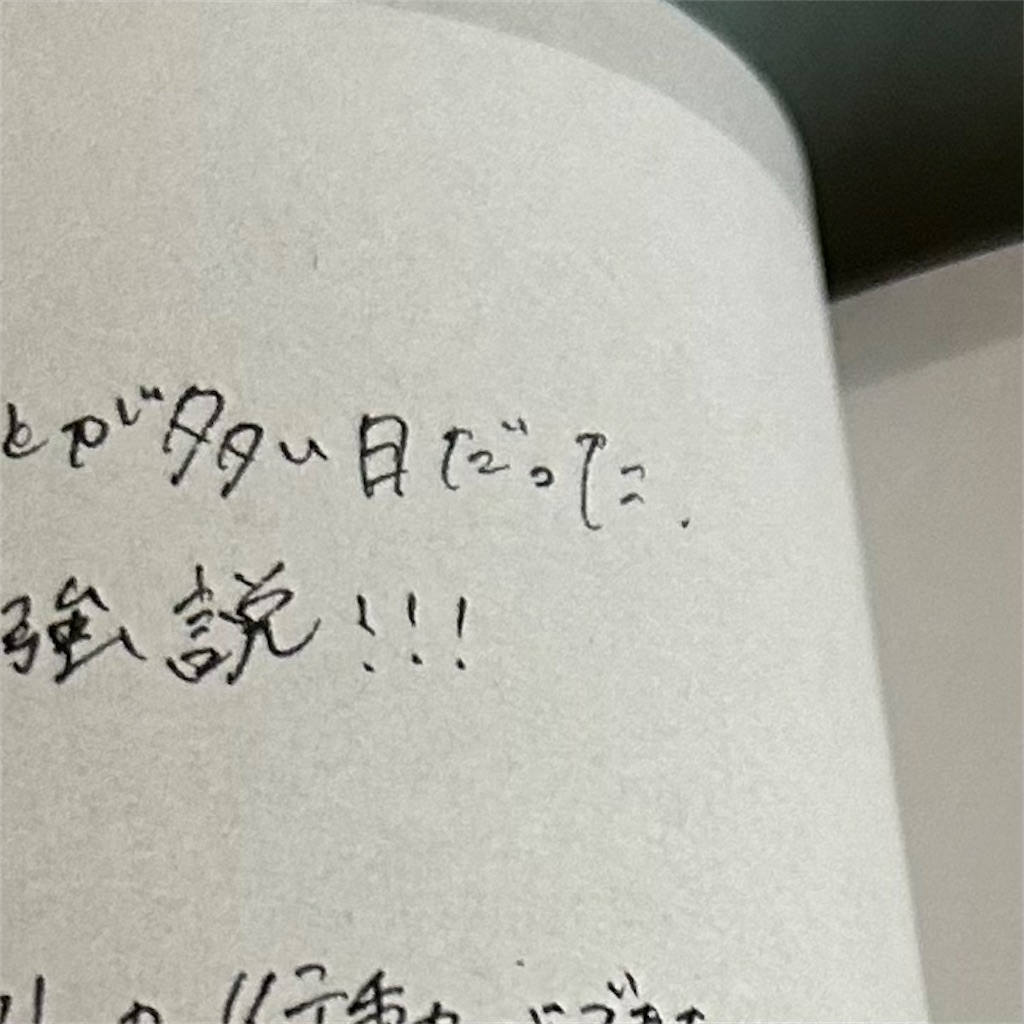 とが多い日だった.
強説!!!
の行動が